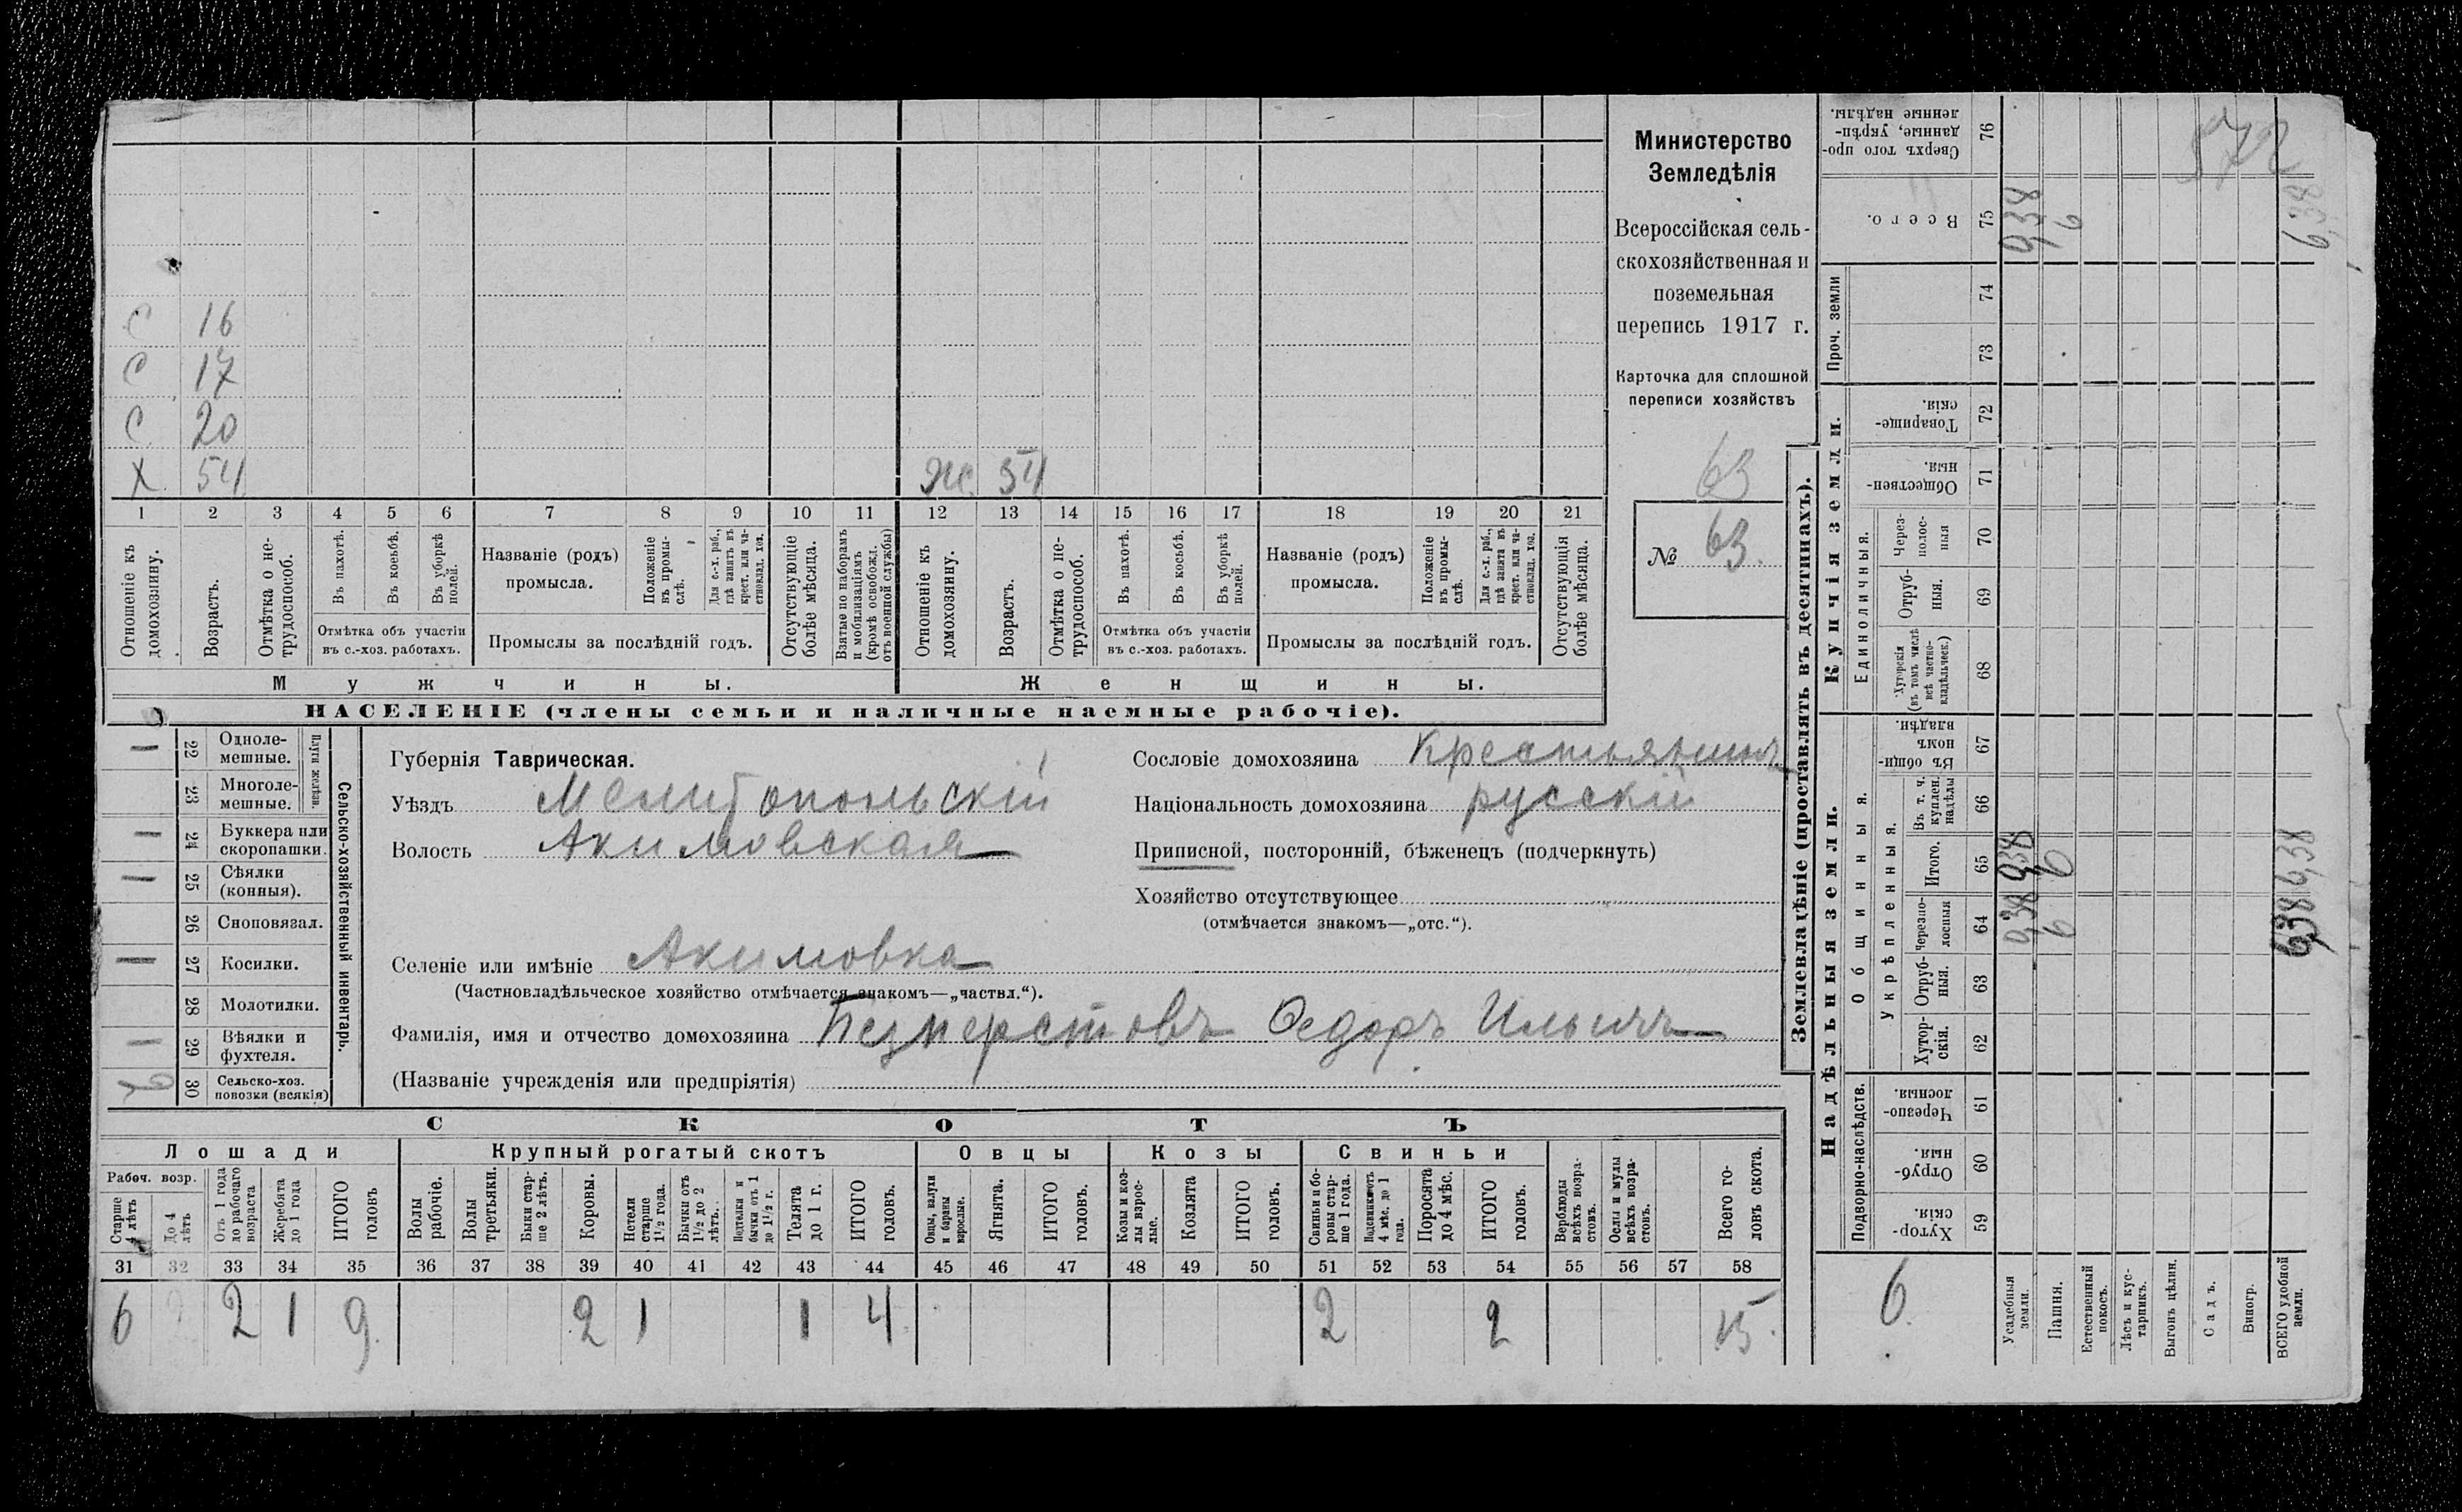 С 16
С 17
С 20
Х 54 Ж. 54
1 2 3 4 5 6 7 8 9 10 11 12 13 14 15 16 17 18 19 20 21
Отношеніе къ домохозяину.
Возрастъ.
Отмѣтка о не-
трудоспособ.
Въ пахотѣ.
Въ косьбѣ.
Въ уборкѣ полей.
Отмѣтка объ участіи
въ с.-хоз. работахъ.
Названіе (родъ)
промысла.
Положеніе въ промы-
слѣ.
Для с.-х. раб.,
гдѣ занятъ въ
крест. или ча-
стновлад. хоз.
Промыслы за послѣдній годъ.
Отсутствующіе
болѣе мѣсяца.
Взятые по наборамъ
и мобилизаціямъ
(кромѣ освобожд.
отъ военной службы)
Отношеніе къ
домохозяину.
Возрастъ.
Отмѣтка о не-
трудоспособ.
Въ пахотѣ.
Въ косьбѣ.
Въ уборкѣ полей.
Отмѣтка объ участіи
въ с.-хоз. работахъ.
Названіе (родъ)
промысла.
Положеніе
въ промы-
слѣ.
Для с.-х. раб.,
гдѣ занята въ
крест. или ча-
стновлад. хоз.
Промыслы за послѣдній годъ.
Отсутствующія
болѣе мѣсяца.
Мужчины.
Женщины.
НАСЕЛЕНІЕ (члены семьи и наличные наемные рабочіе).
Министерство
Земледѣлія
Всероссійская сель-
скохозяйственная и
поземельная
перепись 1917 г.
Карточка для сплошной
переписи хозяйствъ
63
№ 63.
Сельско-хозяйственный инвентарь.
Плуги желѣзн.
1 22 Одноле-
мешные.
23 Многоле-
мешные.
1 24 Буккера или
скоропашки.
1 25 Сѣялки
(конныя).
26 Сноповязал.
1 27 Косилки.
28 Молотилки.
1 29 Вѣялки и
фухтеля.
30 Сельско-хоз.
повозки (всякія)
Губернія Таврическая.
Уѣздъ Мелитопольскій
Волость Акимовская
Селеніе или имѣніе Акимовка
(Частновладѣльческое хозяйство отмѣчается знакомъ—„частвл.“).
Фамилія, имя и отчество домохозяина Безперстовъ Ѳедоръ Ильичъ
(Названіе учрежденія или предпріятія)
Сословіе домохозяина Крестьянинъ
Національность домохозяина русскій
Приписной, посторонній, бѣженецъ (подчеркнуть)
Хозяйство отсутствующее
(отмѣчается знакомъ—„отс.“).
СКОТЪ
Лошади
Крупный рогатый скотъ
Овцы
Козы
Свиньи
Рабоч. возр.
Старше
4 лѣтъ
До 4
лѣтъ
Отъ 1 года
до рабочаго
возраста
Жеребята
до 1 года
ИТОГО
головъ
Волы
рабочіе.
Волы
третьяки.
Быки стар-
ше 2 лѣтъ.
Коровы.
Нетели
старше
1½ года.
Бычки отъ
1½ до 2
лѣтъ.
Подтелки и
бычки отъ 1
до 1½ г.
Телята
до 1 г.
ИТОГО
головъ.
Овцы, валухи
и бараны
взрослые.
Ягнята.
ИТОГО
головъ.
Козы и коз-
лы взрос-
лые.
Козлята
ИТОГО
головъ.
Свиньи и бо-
ровы стар-
ше 1 года.
Подсвинки отъ
4 мѣс. до 1
года.
Поросята
до 4 мѣс.
ИТОГО
головъ.
Верблюды
всѣхъ возра-
стовъ.
Ослы и мулы
всѣхъ возра-
стовъ.
Всего го-
ловъ скота.
31 32 33 34 35 36 37 38 39 40 41 42 43 44 45 46 47 48 49 50 51 52 53 54 55 56 57 58
6 2 1 9. 2 1 1 4 2 2 15.
Землевладѣніе (проставлять въ десятинахъ).
Купчія земли.
Надѣльныя земли.
Сверхъ того про-
данные, укрѣп-
ленные надѣлы. 76
Всего. 75 9,38 6 6,38
572
Проч. земли
74
73
Товарище-
скія. 72
Обществен-
ныя. 71
Единоличныя.
Через-
полос-
ныя 70
Отруб-
ныя. 69
Хуторскія
(въ томъ числѣ
всѣ частно-
владѣльческ.) 68
Общинныя.
Въ общи-
номъ
владѣн. 67
Укрѣпленныя.
Въ т. ч.
куплен.
надѣлы 66
Итого. 65 9,38 6 6,38
Черезпо-
лосныя 64 9,38 6 6,38
Отруб-
ныя. 63
Хутор-
скія. 62
Подворно-наслѣдств.
Черезпо-
лосныя. 61
Отруб-
ныя. 60
Хутор-
скія. 59
6.
Усадебныя
земли.
Пашня.
Естественный
покосъ.
Лѣсъ и кус-
тарникъ.
Выгонъ цѣлин.
Садъ.
Виногр.
ВСЕГО удобной
земли.